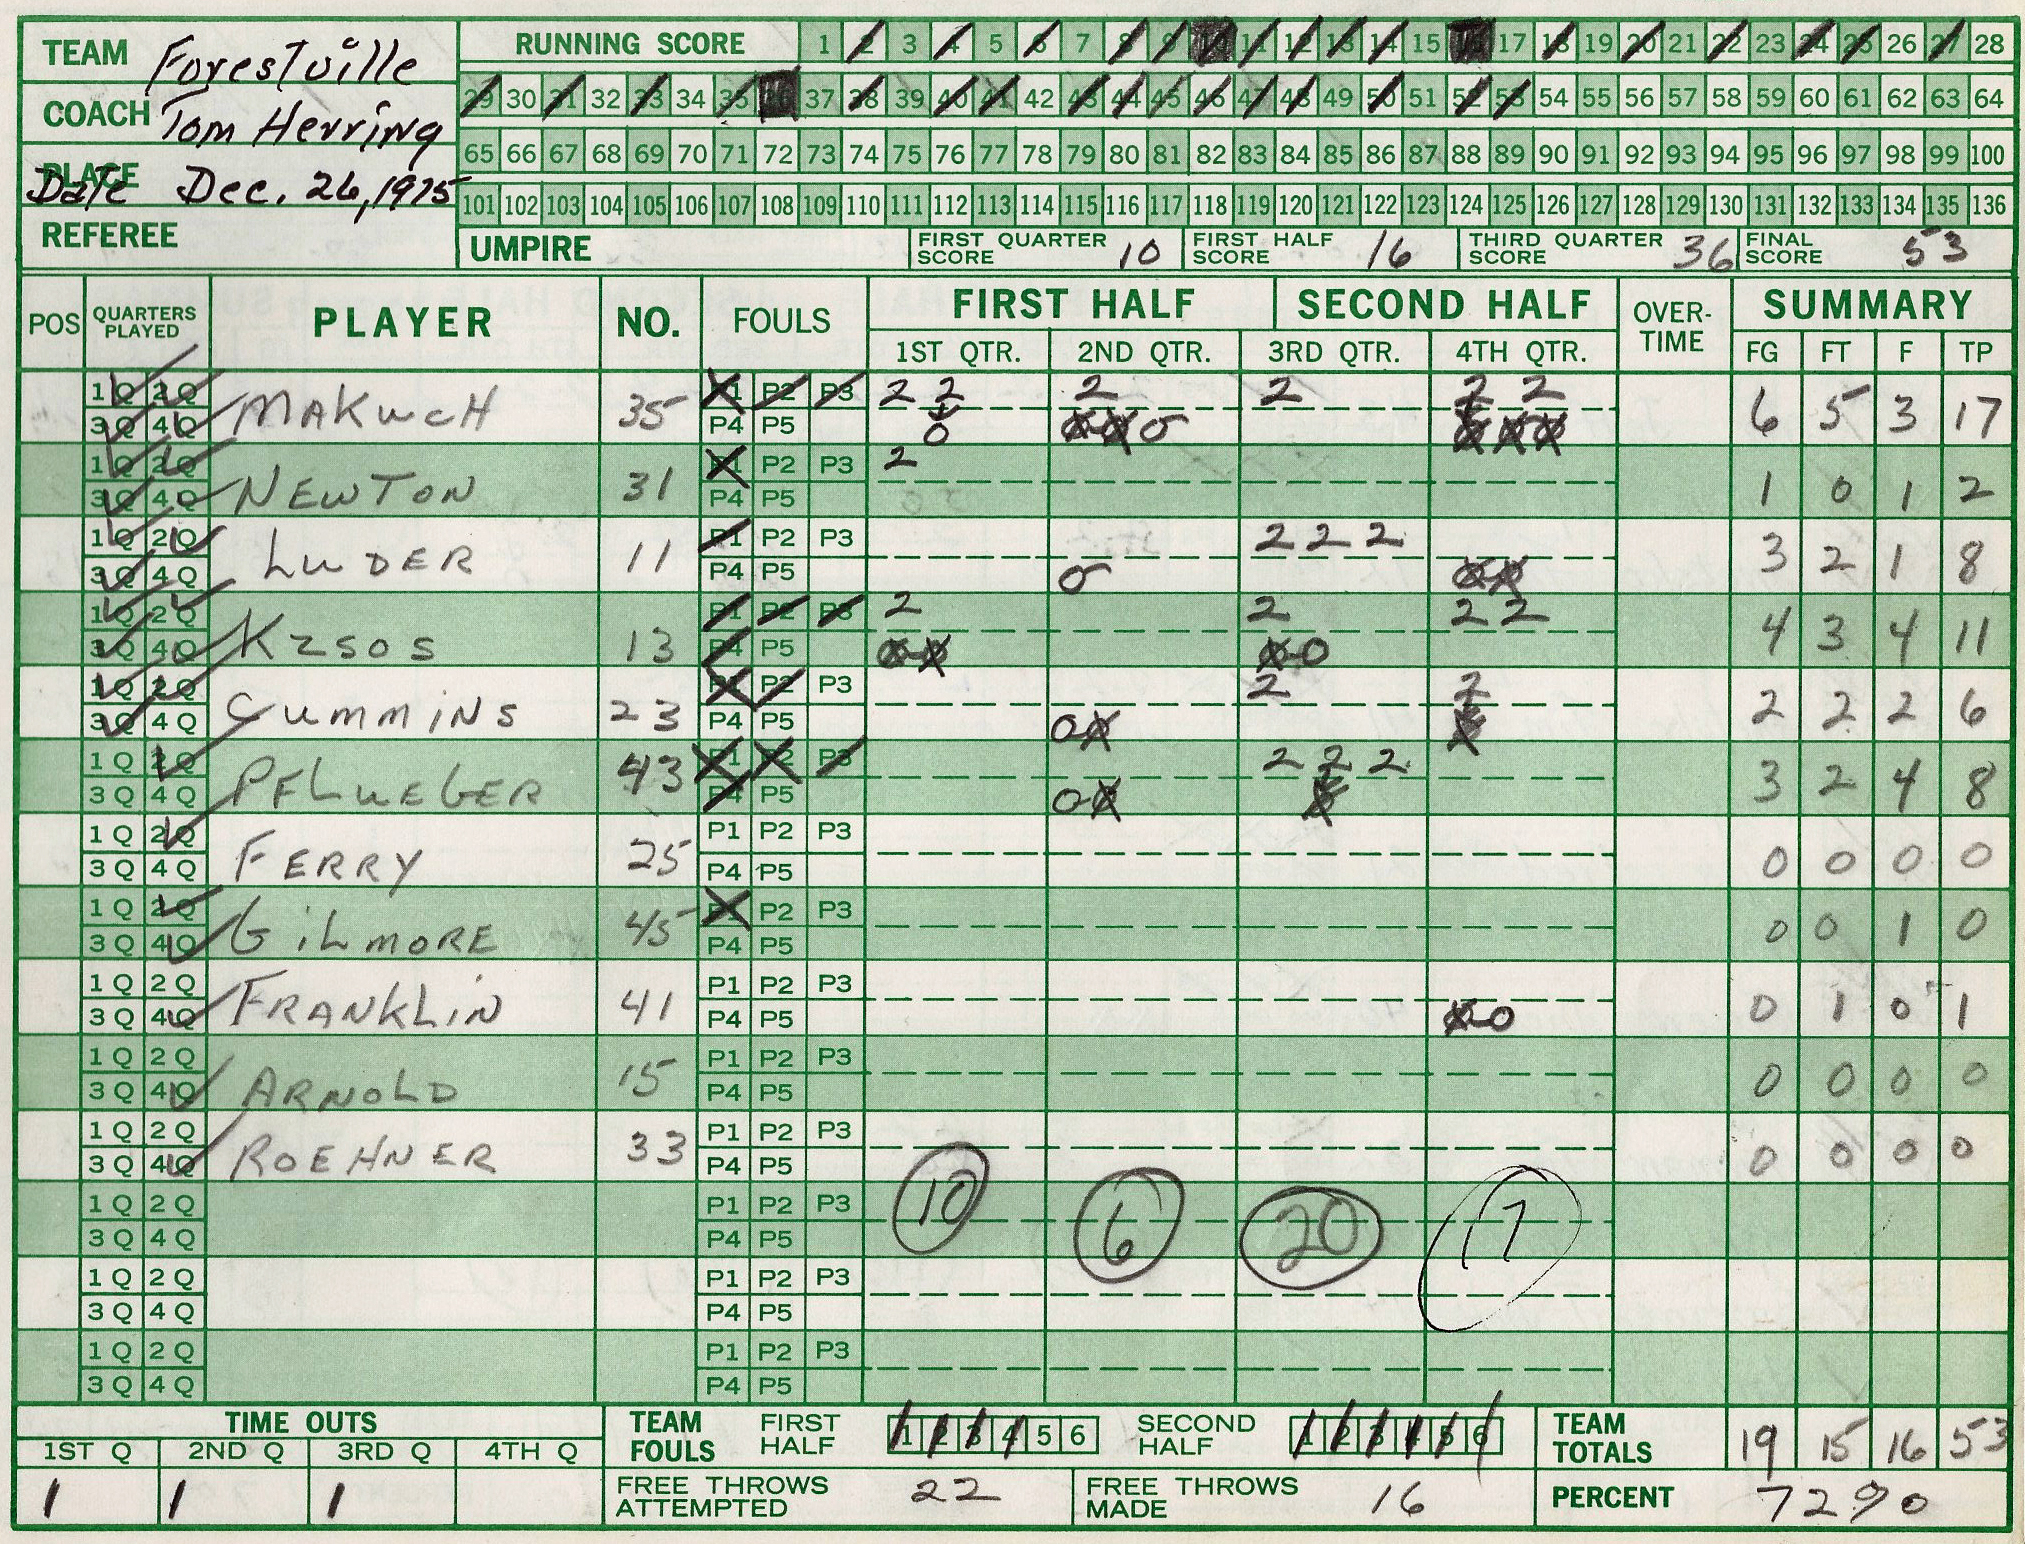 TEAM Forestville
COACH Tom Herring
PLACE
Date Dec. 26, 1975
REFEREE
RUNNING SCORE 1 2 3 4 5 6 7 8 9 10 11 12 13 14 15 16 17 18 19 20 21 22 23 24 25 26 27 28
29 30 31 32 33 34 35 36 37 38 39 40 41 42 43 44 45 46 47 48 49 50 51 52 53 54 55 56 57 58 59 60 61 62 63 64
65 66 67 68 69 70 71 72 73 74 75 76 77 78 79 80 81 82 83 84 85 86 87 88 89 90 91 92 93 94 95 96 97 98 99 100
101 102 103 104 105 106 107 108 109 110 111 112 113 114 115 116 117 118 119 120 121 122 123 124 125 126 127 128 129 130 131 132 133 134 135 136
UMPIRE FIRST QUARTER SCORE 10 FIRST HALF SCORE 16 THIRD QUARTER SCORE 36 FINAL SCORE 53
POS QUARTERS PLAYED PLAYER NO. FOULS FIRST HALF SECOND HALF OVER-TIME SUMMARY
1ST QTR. 2ND QTR. 3RD QTR. 4TH QTR. FG FT F TP
1Q 2Q MAKWCH 35 P1 P2 P3 2 2 2 2 2 2 6 5 3 17
3Q 4Q P4 P5 0 0 0 0 0 0 0
1Q 2Q NEWTON 31 P1 P2 P3 2 1 0 1 2
3Q 4Q P4 P5
1Q 2Q LUDER 11 P1 P2 P3 2 2 2 3 2 1 8
3Q 4Q P4 P5 0 0 0
1Q 2Q KZSOS 13 P1 P2 P3 2 2 2 2 4 3 4 11
3Q 4Q P4 P5 0-0 0-0
1Q 2Q CUMMINS 23 P1 P2 P3 2 2 2 2 2 6
3Q 4Q P4 P5 0 0 0
1Q 2Q PFLUEGER 43 P1 P2 P3 2 2 2 3 2 4 8
3Q 4Q P4 P5 0-0 0
1Q 2Q FERRY 25 P1 P2 P3 0 0 0 0
3Q 4Q P4 P5
1Q 2Q GILMORE 45 P1 P2 P3 0 0 1 0
3Q 4Q P4 P5
1Q 2Q FRANKLIN 41 P1 P2 P3 0 1 0 1
3Q 4Q P4 P5 0-0
1Q 2Q ARNOLD 15 P1 P2 P3 0 0 0 0
3Q 4Q P4 P5
1Q 2Q ROEHNER 33 P1 P2 P3 0 0 0 0
3Q 4Q P4 P5
1Q 2Q P1 P2 P3 10 6 20 17
3Q 4Q P4 P5
1Q 2Q P1 P2 P3
3Q 4Q P4 P5
1Q 2Q P1 P2 P3
3Q 4Q P4 P5
TIME OUTS TEAM FOULS FIRST HALF 1 2 3 4 5 6 SECOND HALF 1 2 3 4 5 6 TEAM TOTALS 19 15 16 53
1ST Q 2ND Q 3RD Q 4TH Q
1 1 1 FREE THROWS ATTEMPTED 22 FREE THROWS MADE 16 PERCENT 72%